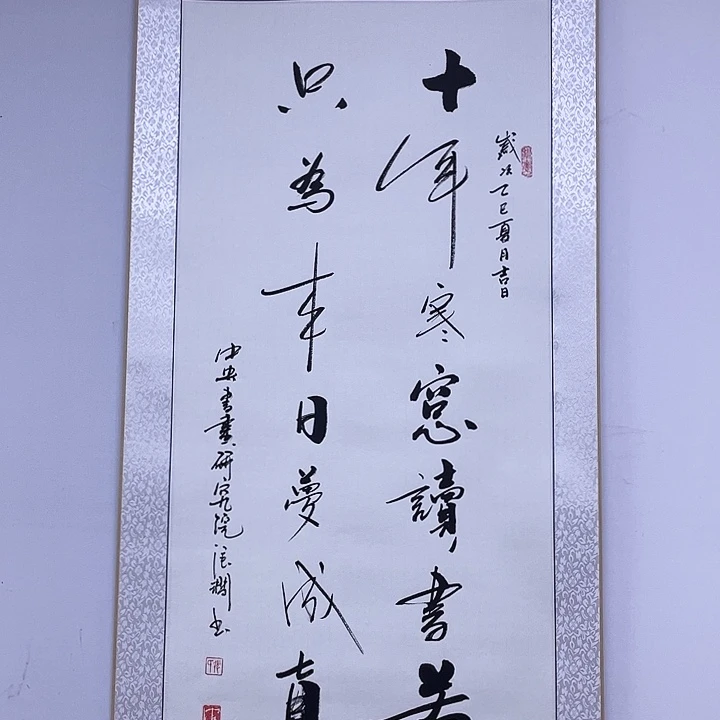 歲次乙巳夏月吉日
十年寒窓讀書苦
只為來日夢成真
中央書畫研究院
書